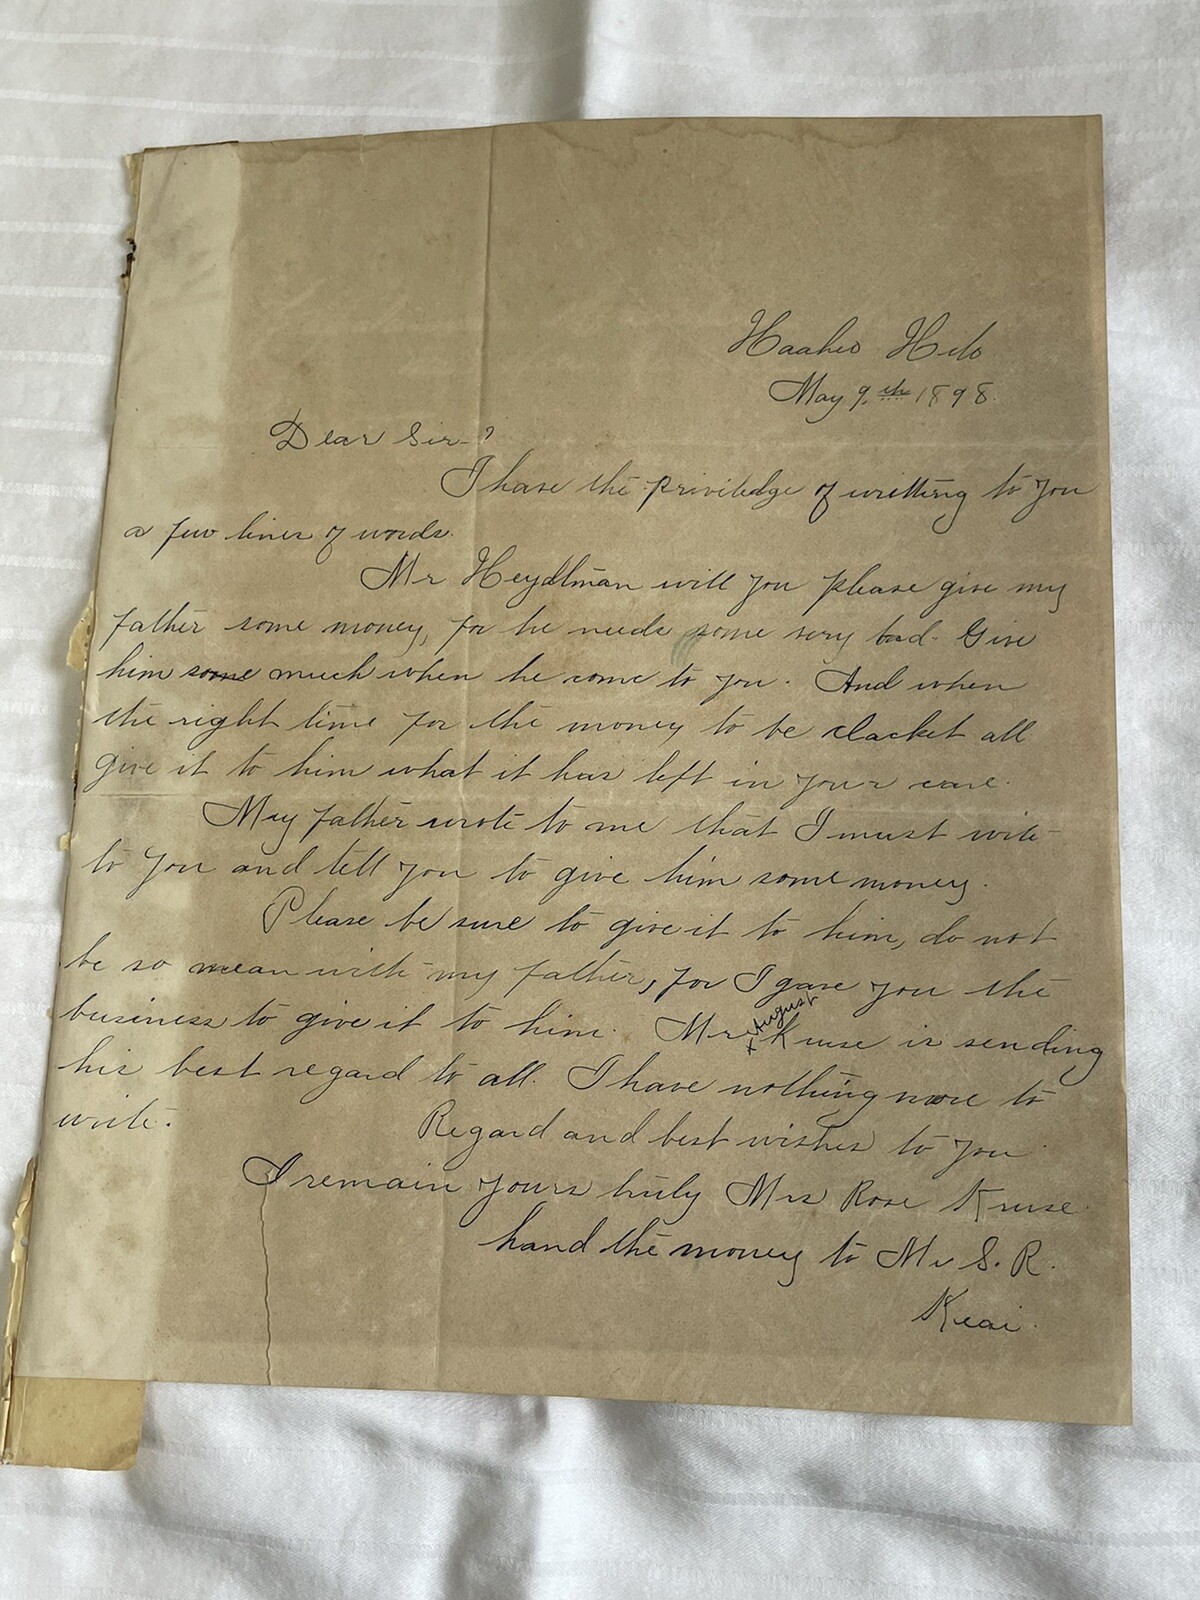 Haaheo Hilo
May 9th 1898.
Dear Sir-?
I have the priviledge of writting to you
a few lines of words.
Mr Heydlman will you please give my
father some money, for he needs some very bad. Give
him some much when he come to you. And when
the right time for the money to be clacket all
give it to him what it has left in your care.
My father wrote to me that I must write
to you and tell you to give him some money.
Please be sure to give it to him, do not
be so mean with my father, for I gave you the
business to give it to him. Mr August Kruse is sending
his best regard to all. I have nothing more to
write.
Regard and best wishes to you
I remain yours truly Mrs Rose Kruse
hand the money to Mr S. R.
Keai.